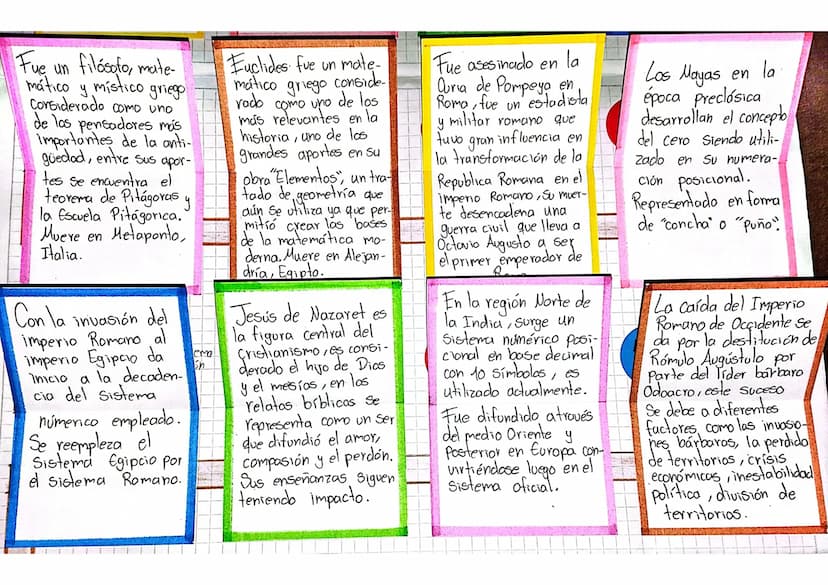 Fue un filósofo, mate-
mático y místico griego
considerado como uno
de los pensadores más
importantes de la anti-
güedad, entre sus apor-
tes se encuentra el
teorema de Pitágoras y
la Escuela Pitágorica.
Muere en Metaponto,
Italia.
Euclides fue un mate-
mático griego conside-
rado como uno de los
más relevantes en la
historia, uno de los
grandes aportes en su
obra "Elementos", un tra-
tado de geometría que
aún se utiliza ya que per-
mitió crear las bases
de la matemática mo-
derna. Muere en Alejan-
dría, Egipto.
Fue asesinado en la
Curia de Pompeyo en
Roma, fue un estadista
y militar romano que
tuvo gran influencia en
la transformación de la
Republica Romana en el
imperio Romano, su muer-
te desencadena una
guerra civil que lleva a
Octavio Augusto a ser
el primer emperador de
Los Mayas en la
época preclásica
desarrollan el concepto
del cero siendo utili-
zado en su numera-
ción posicional.
Representado en forma
de "concha" o "puño".
Con la invasión del
imperio Romano al
imperio Egipcio da
inicio a la decaden-
cia del sistema
númerico empleado.
Se reempleza el
Sistema Egipcio por
el sistema Romano.
Jesús de Nazaret es
la figura central del
cristianismo, es consi-
derado el hijo de Dios
y el mesías, en los
relatos bíblicos se
representa como un ser
que difundió el amor,
compasión y el perdón.
Sus enseñanzas siguen
teniendo impacto.
En la región Norte de
la India, surge un
Sistema numérico posi-
cional en base decimal
con 10 símbolos, es
utilizado actualmente.
Fue difundido através
del medio Oriente y
Posterior en Europa con-
virtiéndose luego en el
Sistema oficial.
La caída del Imperio
Romano de Occidente se
da por la destitución de
Rómulo Augústulo por
Parte del líder bárbaro
Odoacro, este suceso
Se debe a diferentes
factores, como las invasio-
nes bárbaras, la perdida
de territorios, crisis
económicas, inestabilidad
Política, división de
territorios.